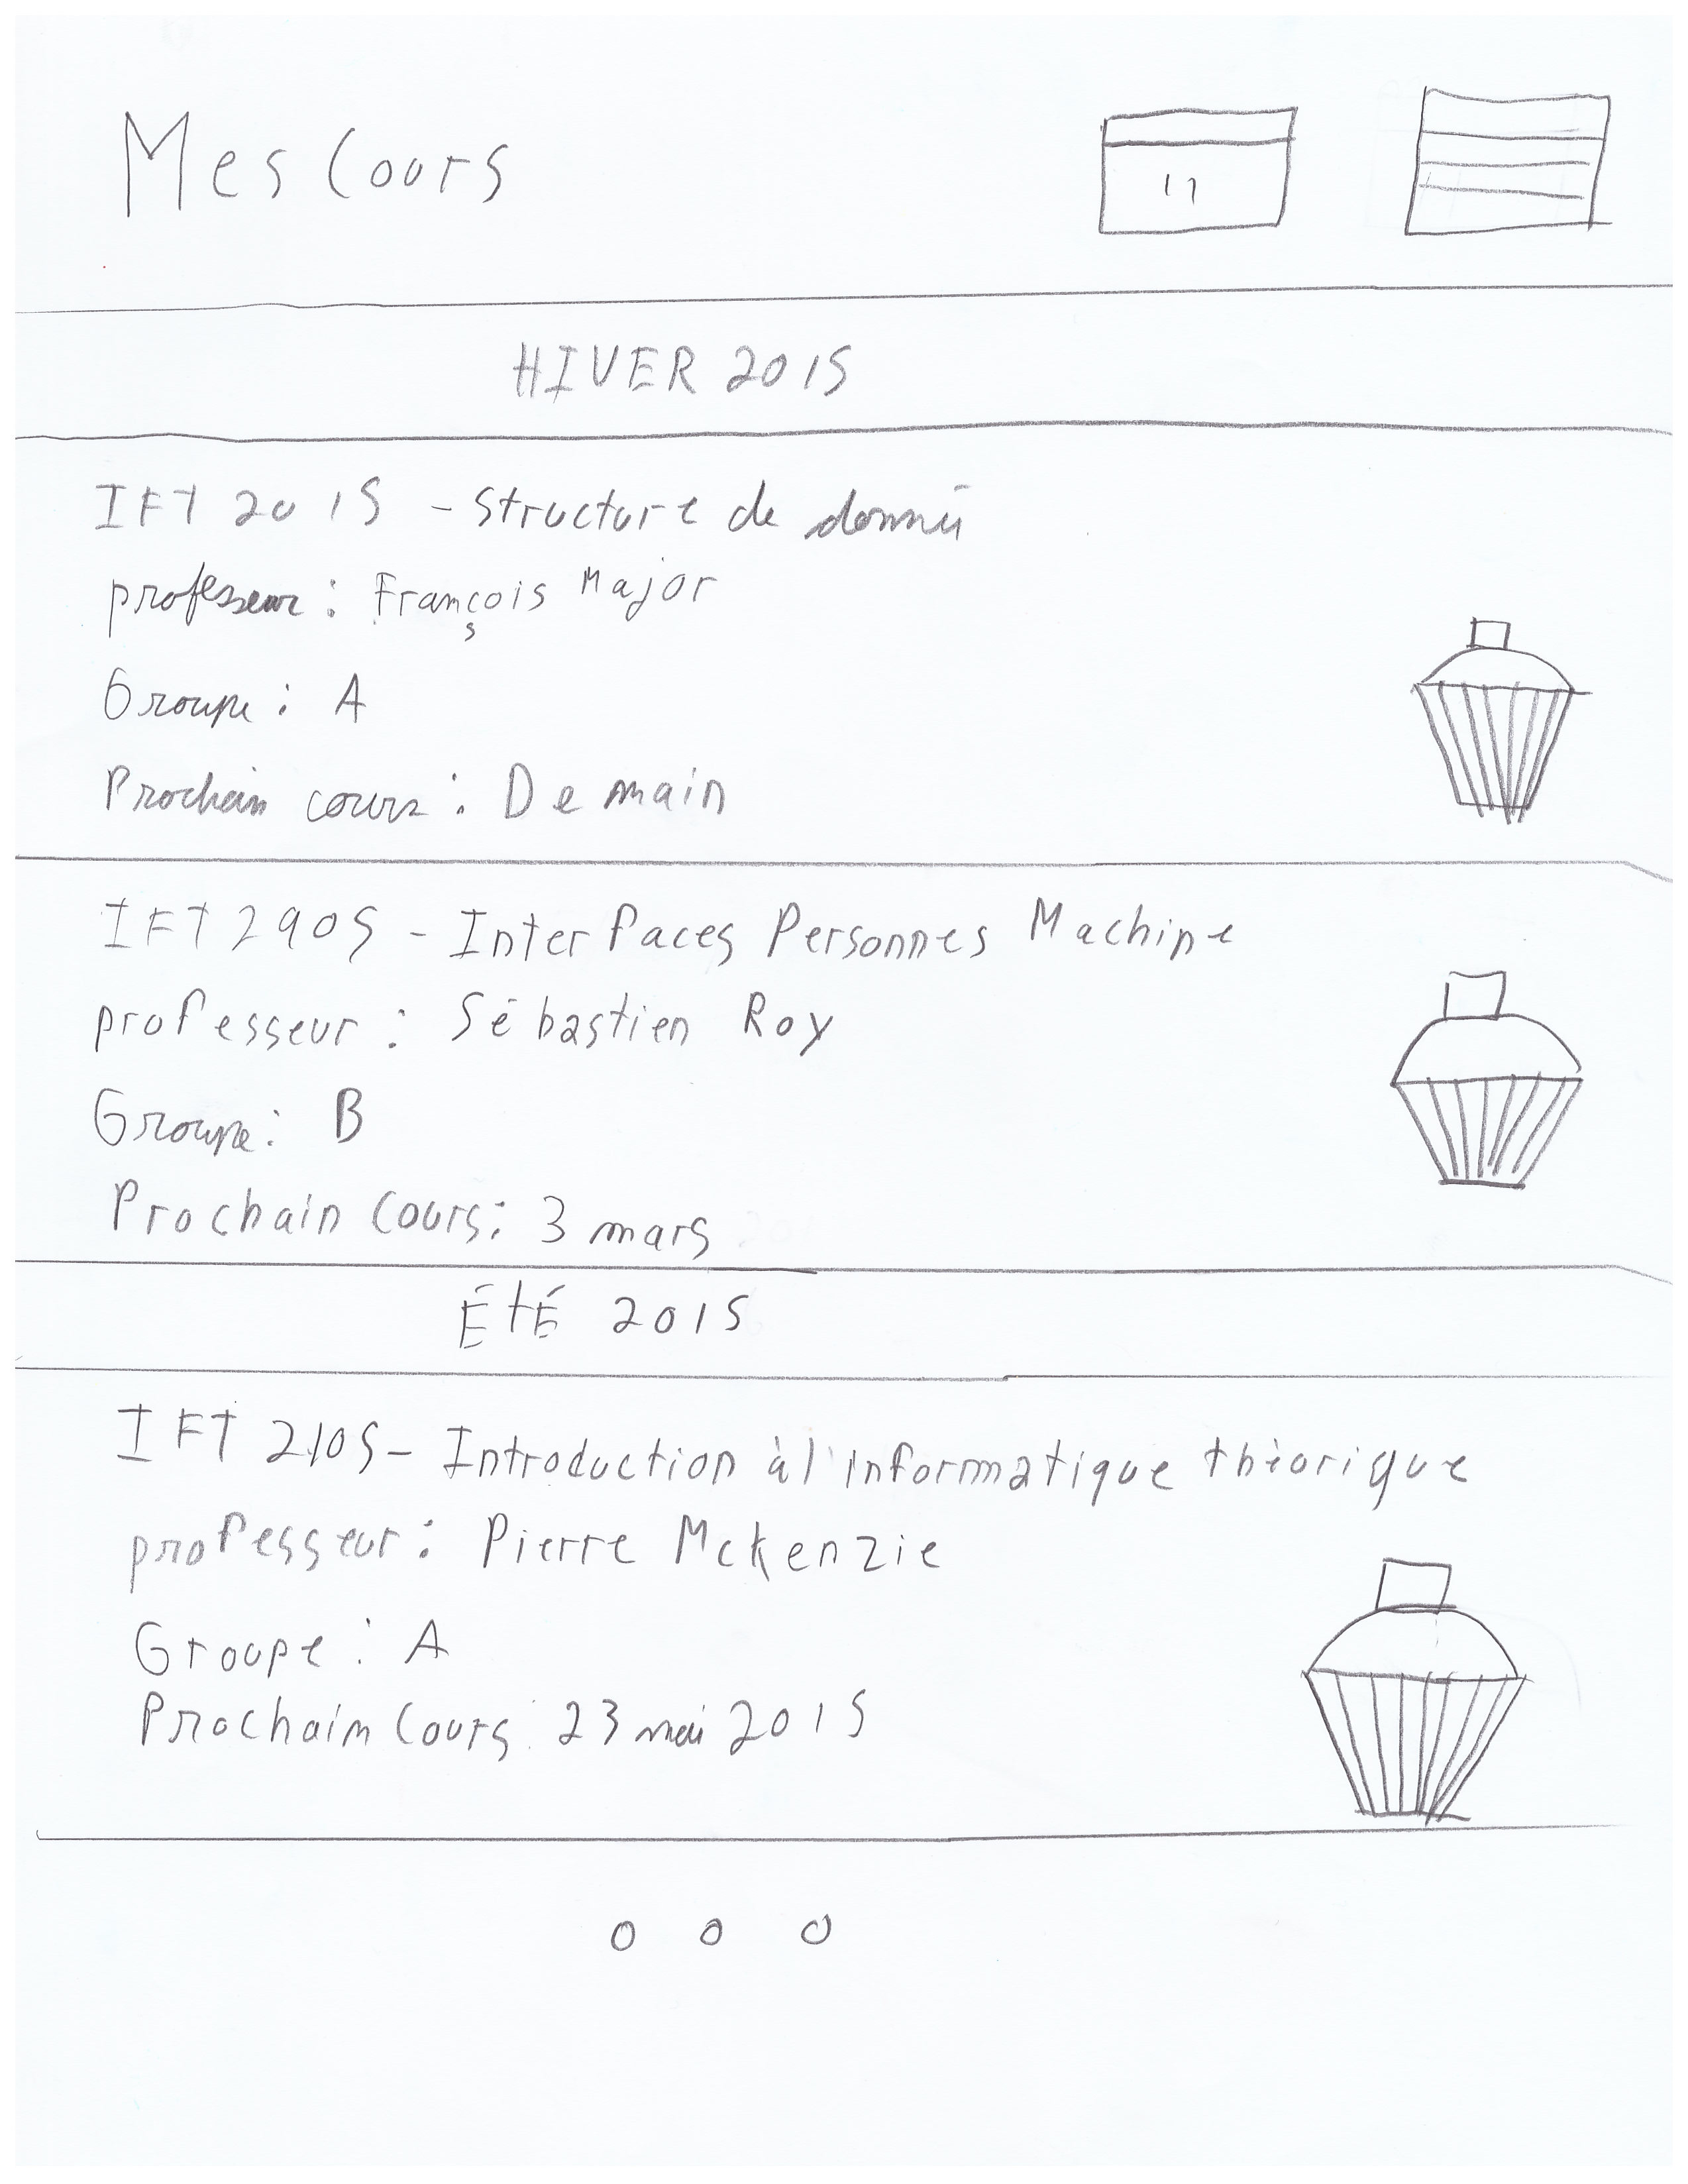 Mes Cours
17
HIVER 2015
IFT 2015 - Structure de donnée
professeur : François Major
Groupe : A
Prochain cours : Demain
IFT 2905 - Interfaces Personnes Machine
professeur : Sébastien Roy
Groupe : B
Prochain Cours : 3 mars
ÉtÉ 2015
IFT 2105 - Introduction à l'informatique théorique
professeur : Pierre McKenzie
Groupe : A
Prochain Cours : 23 mai 2015